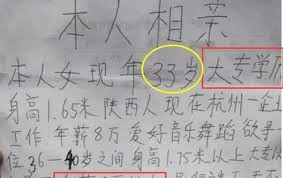 本人相亲
本人女现年33岁大专学历
身高1.65米陕西人现在杭州一企业
工作年薪8万爱好音乐舞蹈欲寻一
位36-40岁之间身高1.75米以上大专以